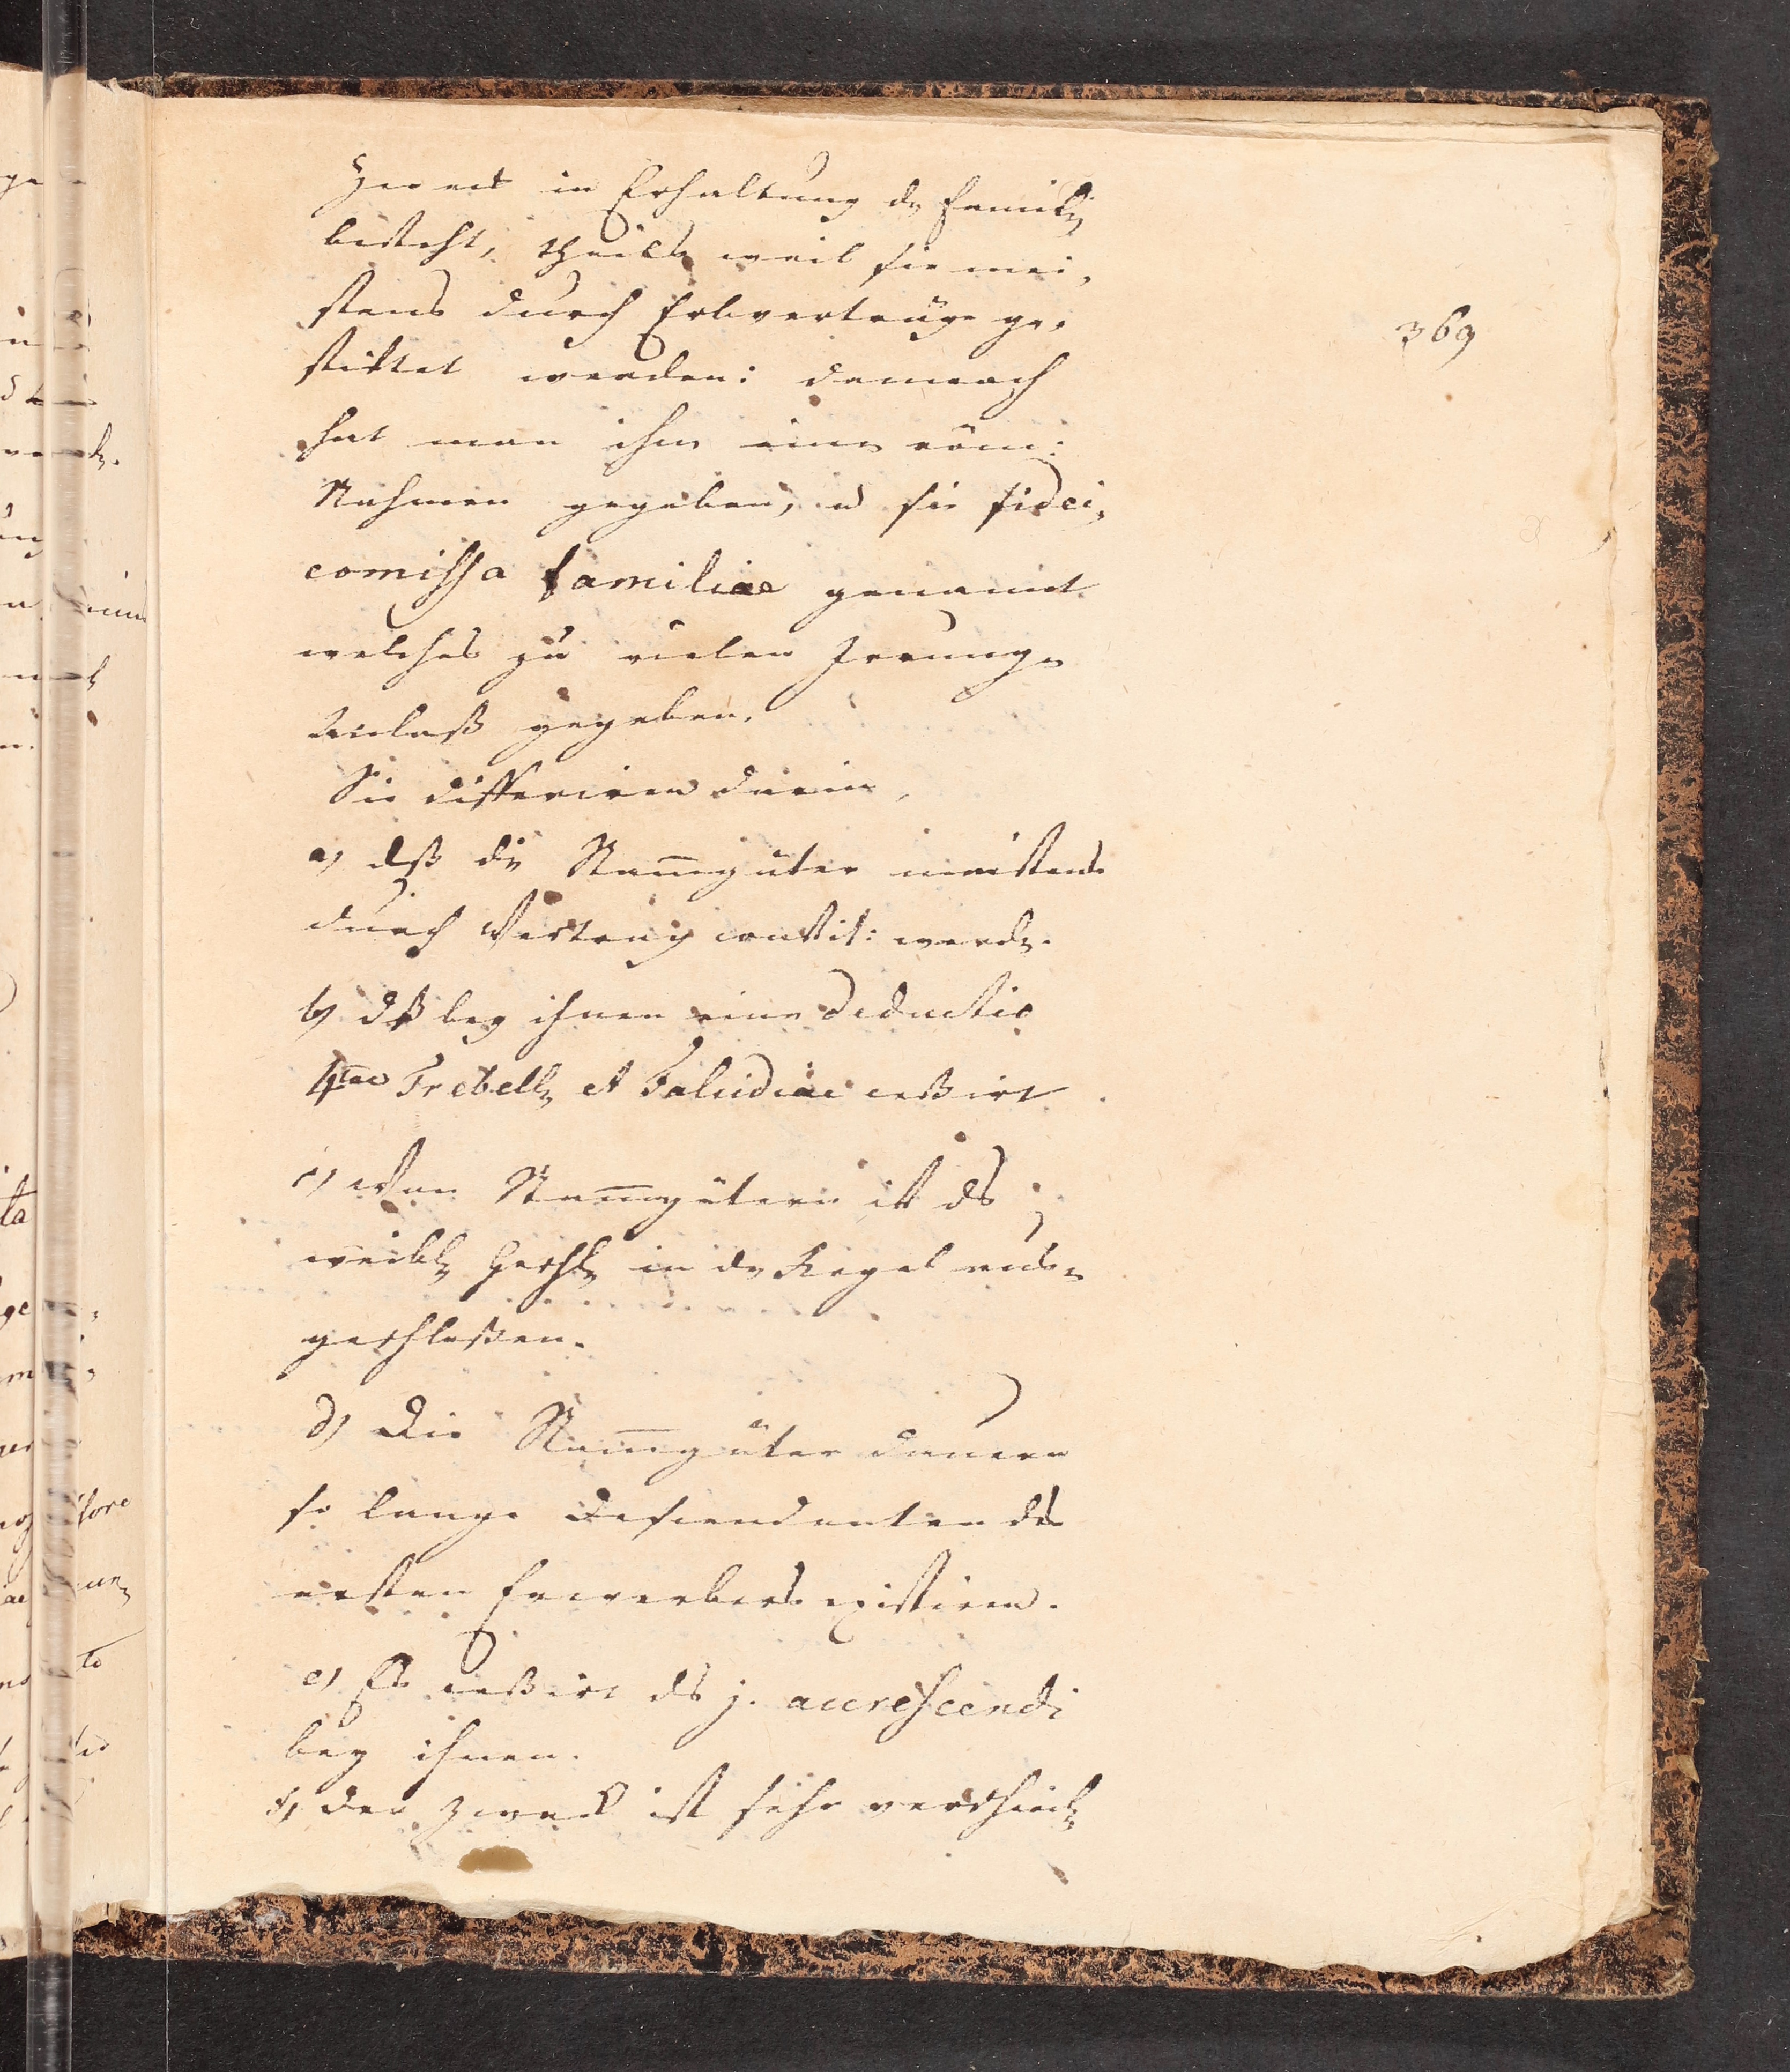 Zweck in Erhaltung der Famil
besteht, theils weil sie mei-
stens durch Erbverträge ge-
stiftet werden: dennoch
hat man ihn eine röm:
Nahmen gegeben, u sie fidei-
comissa familiae genannt
welches zu vielen Irrunge
Anlaß gegeben.
Sie differiren darin,
a) dß die Stam̅güter meistens
durch Vertrag constit: werd.
b) dß bey ihnen eine deductio
4tae Trebell et Falcidiae ceßirt.
c) Von Stam̅gütern ist ds
weibl Geschl in der Regel aus-
geschloßen.
d) Die Stam̅güter dauern
so lange Descendenten ds
ersten Erwerbers existiren.
e) Es ceßirt ds j. accrescendi
bey ihnen.
f) der Zweck ist sehr verschied
369